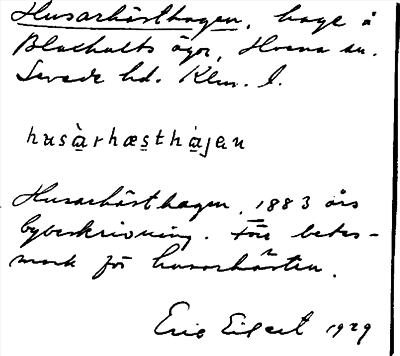 Husarhästhagen, hage å
Blackults ägor, Hvena sn.
Sevede hd. Klm. l.
husàrhæsthájen
Husarhästhagen, 1883 års
bybeskrivning. Förr betes-
mark för husarhästen.
Eric Eilert 1929